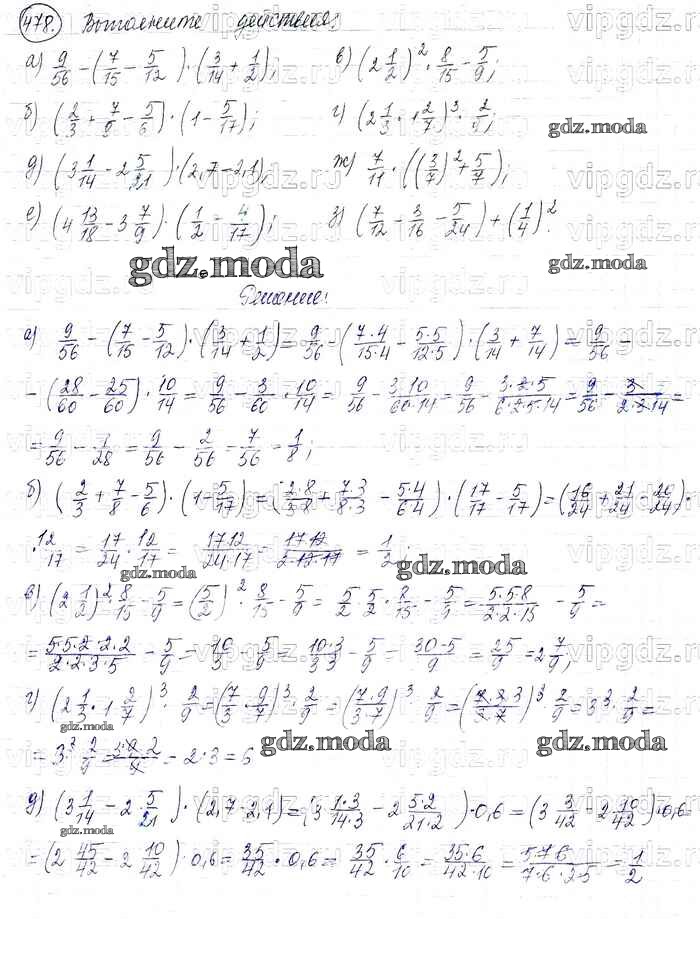 478. Выполните действия:
а) 9/56 − (7/15 − 5/12) · (3/14 + 1/2); в) (2 1/2)² · 8/15 − 5/9;
б) (2/3 + 7/8 − 5/6) · (1 − 5/17); г) (2 1/3 · 1 2/7)³ · 2/9;
gdz.moda
д) (3 1/14 − 2 5/21) · (2,7 − 2,1); ж) 7/11 · ((3/7)² + 5/7);
е) (4 13/18 − 3 7/9) · (1/2 − 4/17); з) (7/12 − 3/16 − 5/24) + (1/4)².
gdz.moda
gdz.moda
Решение:
а) 9/56 − (7/15 − 5/12) · (3/14 + 1/2) = 9/56 − (7·4/15·4 − 5·5/12·5) · (3/14 + 7/14) = 9/56 −
− (28/60 − 25/60) · 10/14 = 9/56 − 3/60 · 10/14 = 9/56 − 3·10/60·14 = 9/56 − 3·2·5/6·2·5·14 = 9/56 − 3/2·3·14 =
= 9/56 − 1/28 = 9/56 − 2/56 = 7/56 = 1/8;
б) (2/3 + 7/8 − 5/6) · (1 − 5/17) = (2·8/3·8 + 7·3/8·3 − 5·4/6·4) · (17/17 − 5/17) = (16/24 + 21/24 − 20/24) ·
· 12/17 = 17/24 · 12/17 = 17·12/24·17 = 17·12/2·12·17 = 1/2;
gdz.moda
gdz.moda
в) (2 1/2)² · 8/15 − 5/9 = (5/2)² · 8/15 − 5/9 = 5/2 · 5/2 · 8/15 − 5/9 = 5·5·8/2·2·15 − 5/9 =
= 5·5·2·2·2/2·2·3·5 − 5/9 = 10/3 − 5/9 = 10·3/3·3 − 5/9 = 30−5/9 = 25/9 = 2 7/9;
г) (2 1/3 · 1 2/7)³ · 2/9 = (7/3 · 9/7)³ · 2/9 = (7·9/3·7)³ · 2/9 = (7·3·3/3·7)³ · 2/9 = 3³ · 2/9 =
gdz.moda
gdz.moda
= 3³ · 2/9 = 3·9·2/9 = 2·3 = 6
д) (3 1/14 − 2 5/21) · (2,7 − 2,1) = (3 1·3/14·3 − 2 5·2/21·2) · 0,6 = (3 3/42 − 2 10/42) · 0,6 =
gdz.moda
= (2 45/42 − 2 10/42) · 0,6 = 35/42 · 0,6 = 35/42 · 6/10 = 35·6/42·10 = 5·7·6/7·6·2·5 = 1/2
vipgdz.ru